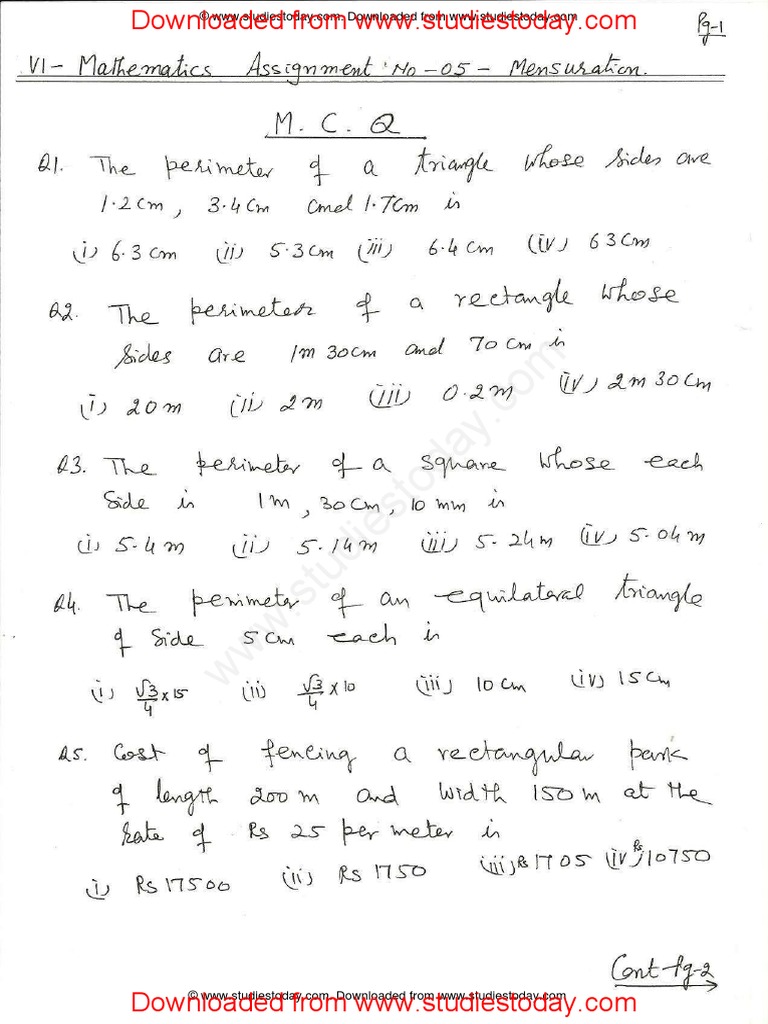 Downloaded from www.studiestoday.com
© www.studiestoday.com. Downloaded from www.studiestoday.com
Pg-1
VI - Mathematics Assignment No-05 - Mensuration.
M. C. Q
Q1. The perimeter of a triangle whose sides are
1.2cm, 3.4cm and 1.7cm is
(i) 6.3cm (ii) 5.3cm (iii) 6.4cm (iv) 63cm
Q2. The perimeter of a rectangle whose
sides are 1m 30cm and 70cm is
(i) 20m (ii) 2m (iii) 0.2m (iv) 2m 30cm
Q3. The perimeter of a square whose each
side is 1m, 30cm, 10mm is
(i) 5.4m (ii) 5.14m (iii) 5.24m (iv) 5.04m
Q4. The perimeter of an equilateral triangle
of side 5cm each is
(i) √3/4 x 15 (ii) √3/4 x 10 (iii) 10cm (iv) 15cm
Q5. Cost of fencing a rectangular park
of length 200m and width 150m at the
rate of Rs 25 per meter is
(i) Rs 17500 (ii) Rs 1750 (iii) Rs 1705 (iv) Rs 10750
Cont-Pg-2
www.studiestoday.com
© www.studiestoday.com. Downloaded from www.studiestoday.com
Downloaded from www.studiestoday.com